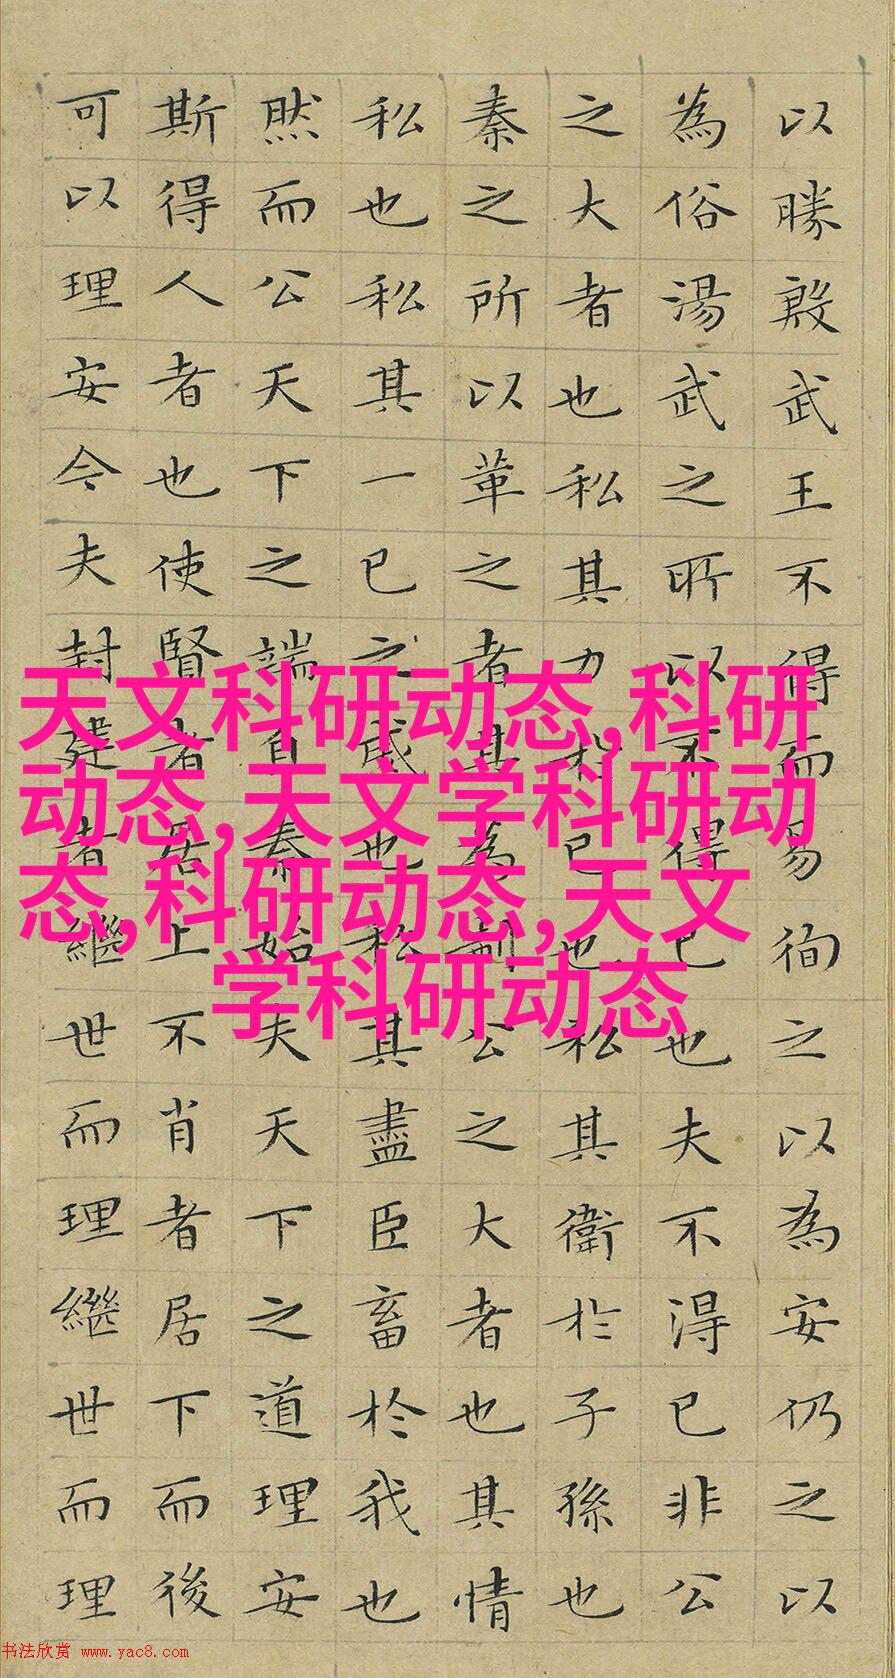 以勝殷武王不得而易徇之以為安仍之以
為俗湯武之所以不得已也夫不得已非公
之大者也私其力於已也私其衛於子孫也
秦之所以革之者其為制公之大者也其情
私也私其一已之威也私其盡臣畜於我也
然而公天下之端自秦始夫天下之道理安
斯得人者也使賢者居上不肖者居下而後
可以理安今夫封建者繼世而理繼世而理
天文科研动态,科研
动态,天文学科研动
态,科研动态,天文
学科研动态
书法欣赏 www.yac8.com